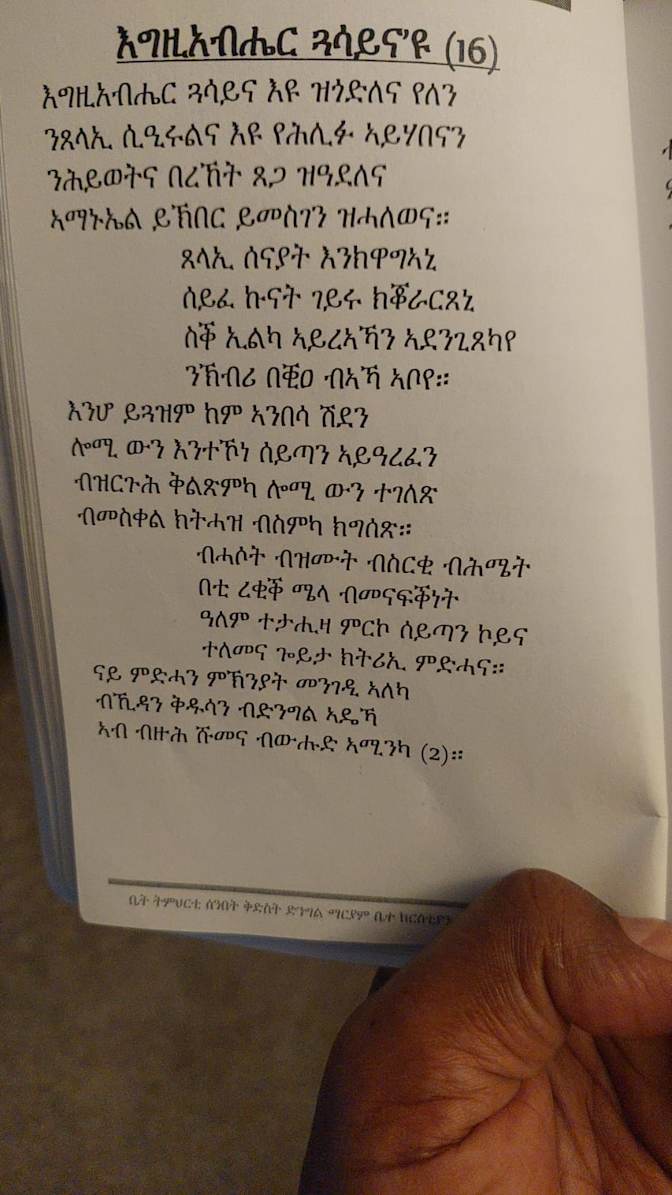 እግዚኣብሔር ጓሳይና'ዩ (16)
እግዚኣብሔር ጓሳይና እዩ ዝጎድለና የለን
ንጸላኢ ሲዒሩልና እዩ የሕሊፉ ኣይሃበናን
ንሕይወትና በረኸት ጸጋ ዝዓደለና
ኣማኑኤል ይኽበር ይመስገን ዝሓለወና።
ጸላኢ ሰናያት እንክዋግኣኒ
ሰይፈ ኩናት ገይሩ ክቖራርጸኒ
ስቕ ኢልካ ኣይረኣኻን ኣደንጊጸካየ
ንኽብሪ በቒዐ ብኣኻ ኣቦየ።
እንሆ ይጓዝም ከም ኣንበሳ ሽደን
ሎሚ ውን እንተኾነ ሰይጣን ኣይዓረፈን
ብዝርጉሕ ቅልጽምካ ሎሚ ውን ተገለጽ
ብመስቀል ክትሓዝ ብስምካ ክግሰጽ።
ብሓሶት ብዝሙት ብስርቂ ብሕሜት
በቲ ረቂቕ ሜላ ብመናፍቕነት
ዓለም ተታሒዛ ምርኮ ሰይጣን ኮይና
ተለመና ጐይታ ክትሪኢ ምድሓና።
ናይ ምድሓን ምክንያት መንገዲ ኣለካ
ብኺዳን ቅዱሳን ብድንግል ኣዴኻ
ኣብ ብዙሕ ሹመና ብውሑድ ኣሚንካ (2)።
ቤት ትምህርቲ ሰንበት ቅድስት ድንግል ማርያም ቤተ ክርስቲያን